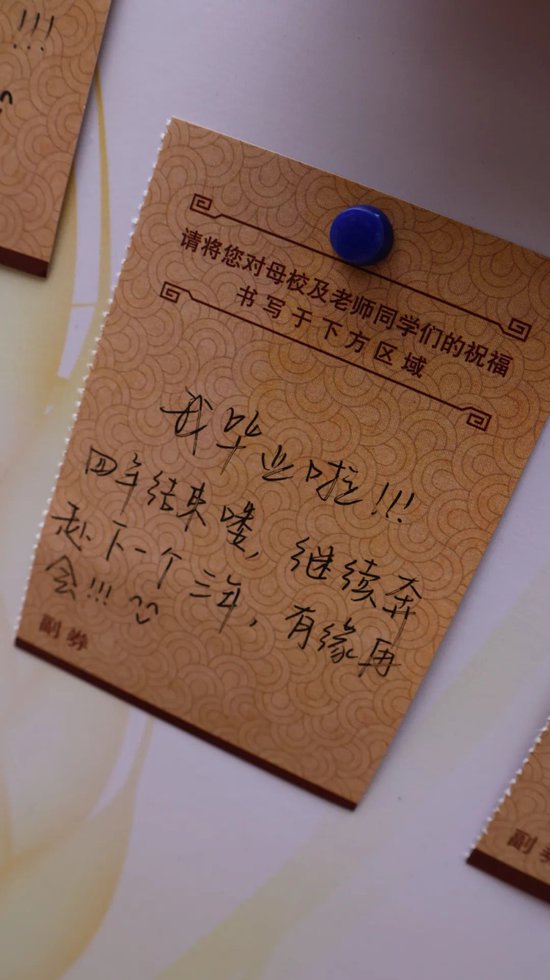 !!!
请将您对母校及老师同学们的祝福
书写于下方区域
我毕业啦!!!
四年结束喽，继续奔
赴下一个三年，有缘再
会!!!
副券
副券